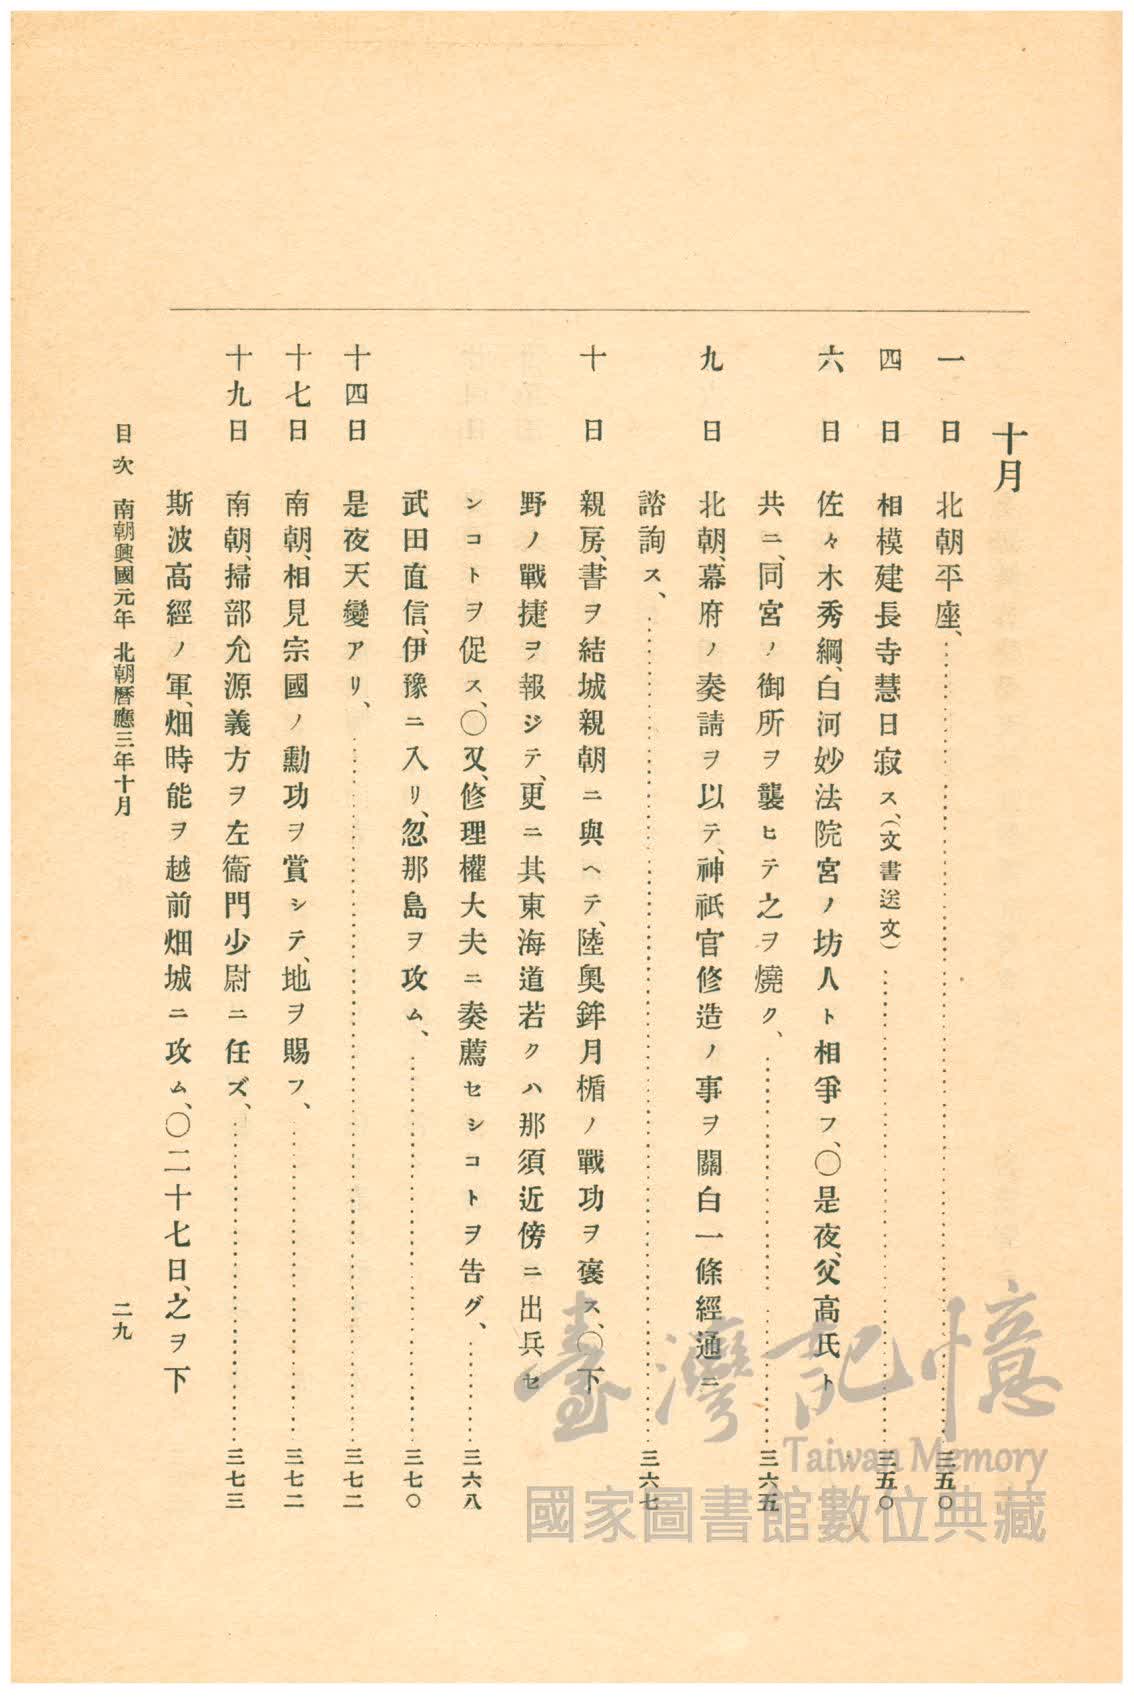 十月
一日 北朝平座、 三五〇
四日 相模建長寺慧日寂ス、(文書送文) 三五〇
六日 佐々木秀綱、白河妙法院宮ノ坊人ト相爭フ、〇是夜、父高氏ト
共ニ、同宮ノ御所ヲ襲ヒテ之ヲ燒ク、 三六五
九日 北朝、幕府ノ奏請ヲ以テ、神祇官修造ノ事ヲ關白一條經通ニ
諮詢ス、 三六七
十日 親房、書ヲ結城親朝ニ與ヘテ、陸奧鉾月楯ノ戰功ヲ褒ス、〇下
野ノ戰捷ヲ報ジテ、更ニ其東海道若クハ那須近傍ニ出兵セ
ンコトヲ促ス、〇又、修理權大夫ニ奏薦セシコトヲ告グ、 三六八
武田直信、伊豫ニ入リ、忽那島ヲ攻ム、 三七〇
十四日 是夜天變アリ、 三七二
十七日 南朝、相見宗國ノ勳功ヲ賞シテ、地ヲ賜フ、 三七二
十九日 南朝、掃部允源義方ヲ左衞門少尉ニ任ズ、 三七三
斯波高經ノ軍、畑時能ヲ越前畑城ニ攻ム、〇二十七日、之ヲ下
目次 南朝興國元年 北朝曆應三年十月 二九
臺灣記憶
Taiwan Memory
國家圖書館數位典藏